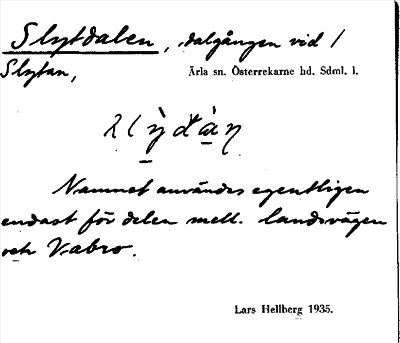 Slytdalen, dalgången vid /
Slytan, Ärla sn. Österrekarne hd. Sdml. l.
Namnet användes egentligen
endast för delen mell. landsvägen
och Vabro.
Lars Hellberg 1935.